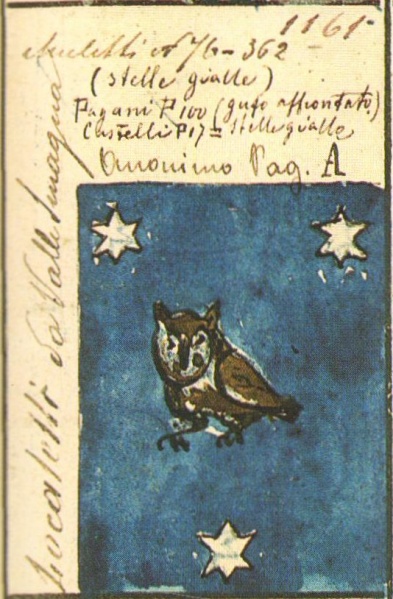 1161
Muletti n° 76 - 362
(Stelle gialle)
Pagani P 100 (gufo affrontato)
Castelli P 17 = Stelle gialle
Anonimo Pag. A
da Valle Imagna